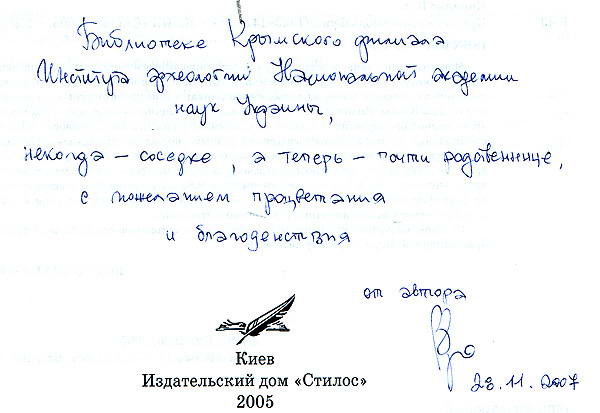 Библиотеке Крымского филиала
Института археологии Национальной академии
наук Украины,
некогда – соседке, а теперь – почти родственнице,
с пожеланием процветания
и благоденствия
от автора
28.11.2007
Киев
Издательский дом «Стилос»
2005